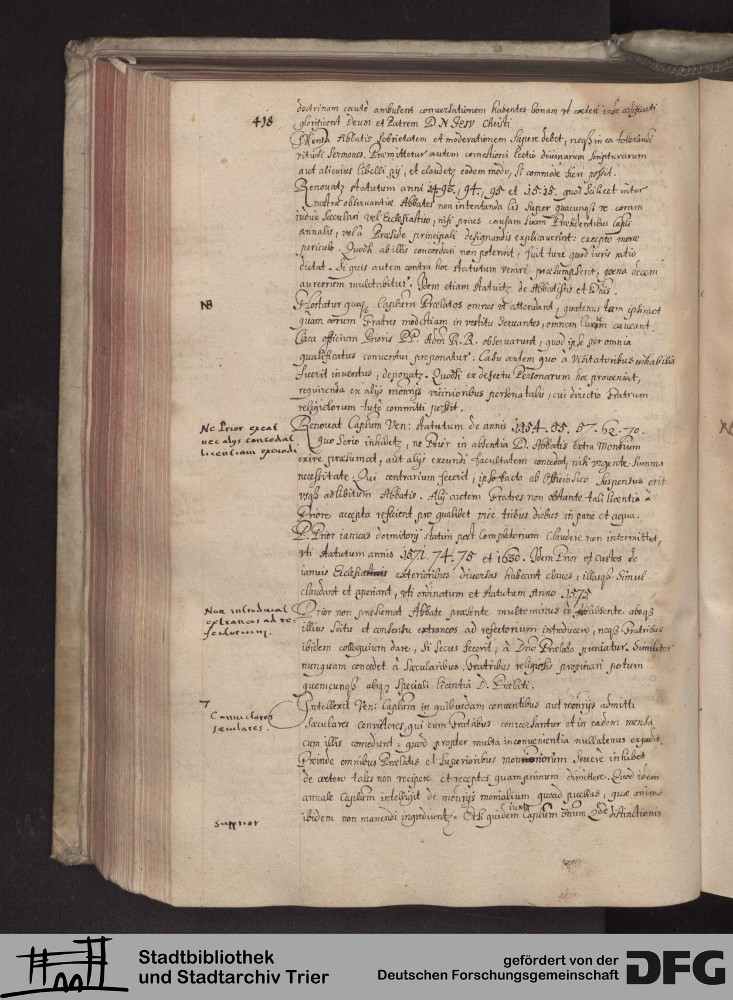 doctrinam caute ambulent conversationem habentes bonam ut coeteri inde ædificati
418
glorificent Deum et Patrem D. N. Jesu Christi
Mensa Abbatis sobrietatem et moderationem sapere debet, neqȝ in ea tolerandi
sermones. Præmittetur autem comestioni lectio divinarum scripturarum
aut alicuius libelli pij, et claudetȝ eodem modo, si commode fieri possit.
Renovatȝ statutum anni 1493, 94, 95 et 1515 quod scilicet inter
nostræ observantiæ Abbates non intentanda lis super quacunqȝ re coram
iudice sæculari vel Ecclesiastico, nisi prius causam suam Præsidentibus capli
annalis, vel a Præside principali designandis explicaverint: excepto moræ
periculo. Quodsi ab illis concordari non poterint, fiat iure quod iuris ratio
dictat. Si quis autem contra hoc statutum venire præsumpserit, poena decem
aureorum mulctabitur. Idem etiam statuitȝ de Abbatissis et
NB
Hortatur quoqȝ Caplum Prælatos omnes ut attendant, quatenus tum ipsimet
quam eorum Fratres modestiam in vestitu servantes, omnem luxum caveant.
Circa officium Prioris PP. Adm R.R. observarunt, quod ipse per omnia
qualificatus conventui proponatur. Casu autem quo a Visitatoribus inhabilis
fuerit inventus, deponatȝ. Quodsi ex defectu Personarum hoc proveniat,
requirenda ex alijs monrijs vicinioribus persona talis, cui directio Fratrum
religiosorum tuto committi possit.
Ne Prior exeat
nec alijs concedat
licentiam exeundi
Renovat Caplum Ven: statutum de annis 1454. 55. 57. 62. 70.
quo serio inhibetȝ, ne Prior in absentia D. Abbatis extra Monrium
exire præsumat, aut alijs exeundi facultatem concedat, nisi urgente summa
necessitate. Qui contrarium fecerit, ipso facto ab Officio suo suspensus erit
usqȝ ad libitum Abbatis. Alij autem Fratres non obstante tali licentia a
Priore accepta reficient pro qualibet vice tribus diebus in pane et aqua.
P. Prior ianuas dormitorij statim post Completorium claudere non intermittet,
uti statutum annis 1571. 74. 75 et 1650. Idem Prior et Custos de
ianuis exterioribus diversas habeant claves, illasqȝ simul
claudant et aperiant, uti ordinatum et statutum Anno 1575
Non introducat
extraneos ad re-
fectorium.
Prior non præsumat Abbate præsente multominus eo absente absqȝ
illius scitu et consensu extraneos ad refectorium introducere, neqȝ Fratribus
ibidem colloquium dare, si secus fecerit, a Dno Prælato puniatur. Similiter
nunquam concedet a sæcularibus Fratribus religiosis propinari potum
quemcunqȝ absqȝ speciali licentia D. Prælati.
7
Convictores
seculares.
Intellexit Ven: Caplum in quibusdam conventibus aut monrijs admitti
sæculares convictores, qui cum Fratribus conversantur et in eadem mensa
cum illis comedunt: quod propter multa inconvenientia nullatenus expedit.
Proinde omnibus Prælatis et superioribus severe inhibet
de coetero tales non recipere et receptos quamprimum dimittere. Quod idem
annale Caplum intelligit de monrijs monialium quoad puellas, quæ animo
Supprior
ibidem non manendi ingrediuntȝ. Etsi quidem iuxta Caplum distinctionis
Stadtbibliothek
und Stadtarchiv Trier
gefördert von der
Deutschen Forschungsgemeinschaft
DFG